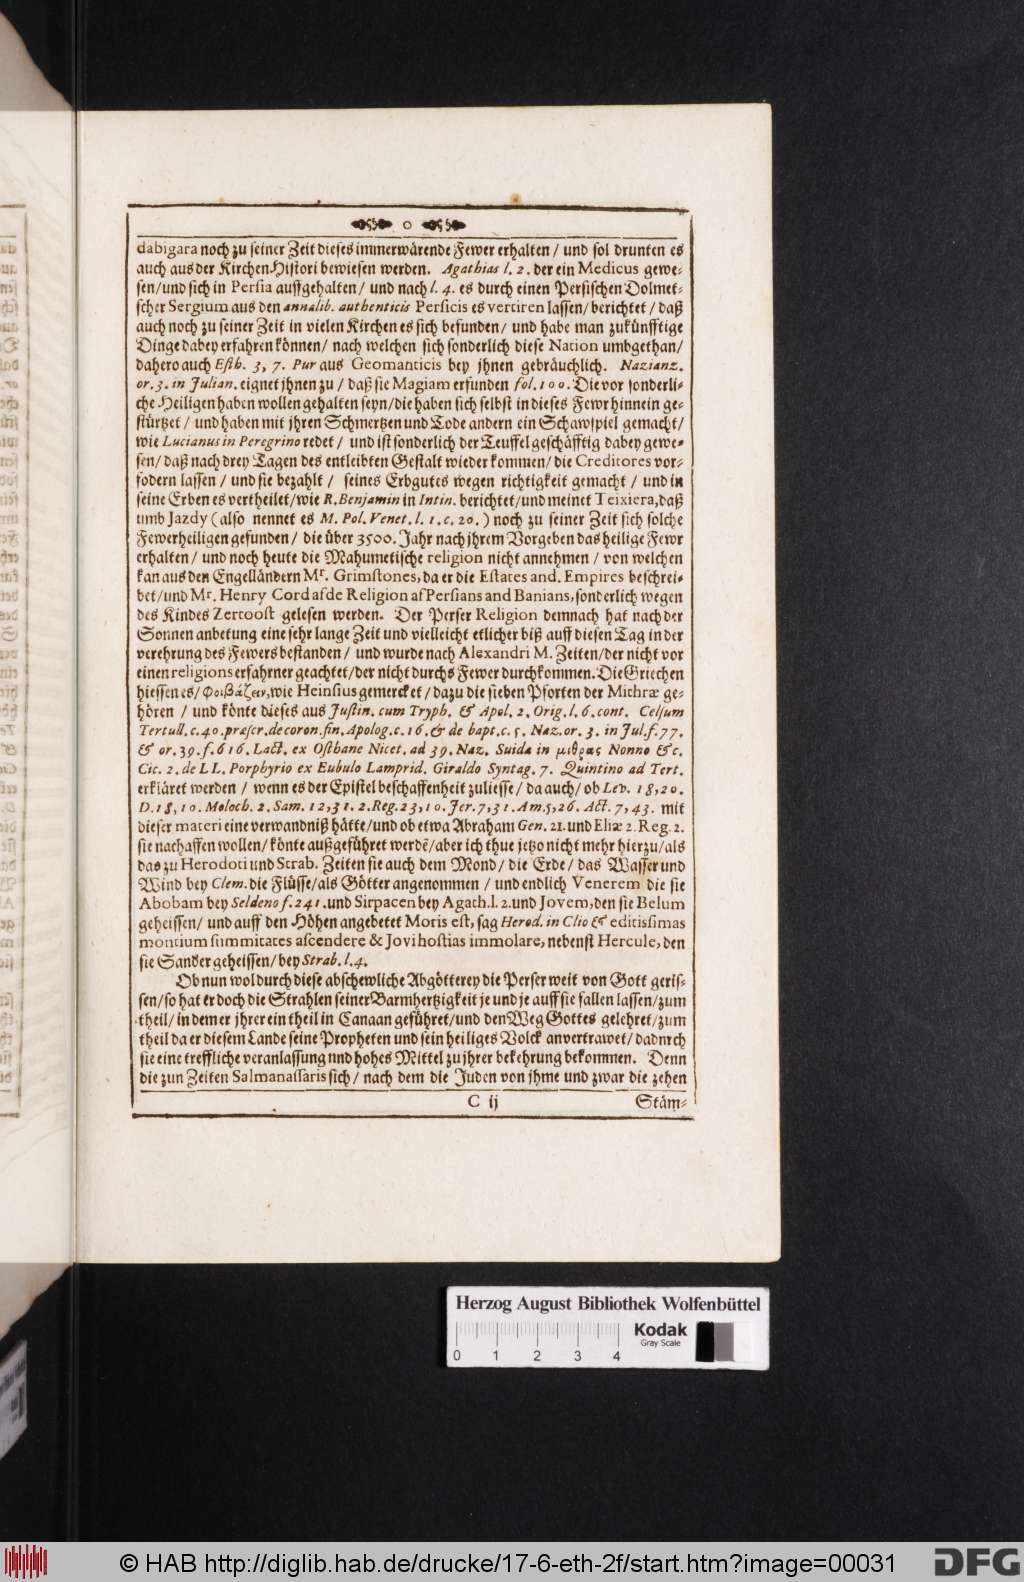 dabigara noch zu seiner Zeit dieses immerwärende Fewer erhalten / und sol drunten es
auch aus der Kirchen-Histori bewiesen werden. Agathias l. 2. der ein Medicus gewe-
sen/und sich in Persia auffgehalten / und nach l. 4. es durch einen Persischen Dolmet-
scher Sergium aus den annalib. authenticis Persicis es vertiren lassen/ berichtet / daß
auch noch zu seiner Zeit in vielen Kirchen es sich befunden / und habe man zukünfftige
Dinge dabey erfahren können / nach welchen sich sonderlich diese Nation umbgethan /
dahero auch Esth. 3, 7. Pur aus Geomanticis bey jhnen gebräuchlich. Nazianz.
or. 3. in Julian. eignet jhnen zu / daß sie Magiam erfunden fol. 100. Die vor sonderli-
che Heiligen haben wollen gehalten seyn/die haben sich selbst in dieses Fewr hinnein ge-
stürtzet / und haben mit jhren Schmertzen und Tode andern ein Schawspiel gemacht/
wie Lucianus in Peregrino redet / und ist sonderlich der Teuffel geschäfftig dabey gewe-
sen/ daß nach drey Tagen des entleibten Gestalt wieder kommen/ die Creditores vor-
fodern lassen / und sie bezahlt / seines Erbgutes wegen richtigkeit gemacht / und in
seine Erben es vertheilet/wie R. Benjamin in Intin. berichtet/und meinet Teixiera, daß
umb Jazdy ( also nennet es M. Pol. Venet. l. 1. c. 20. ) noch zu seiner Zeit sich solche
Fewerheiligen gefunden / die über 3500. Jahr nach jhrem Vorgeben das heilige Fewr
erhalten / und noch heute die Mahumetische religion nicht annehmen / von welchen
kan aus den Engelländern Mr. Grimstones, da er die Estates and. Empires beschrei-
bet/und Mr. Henry Cord afde Religion af Persians and Banians, sonderlich wegen
des Kindes Zertoost gelesen werden. Der Perser Religion demnach hat nach der
Sonnen anbetung eine sehr lange Zeit und vielleicht etlicher biß auff diesen Tag in der
verehrung des Fewers bestanden / und wurde nach Alexandri M. Zeiten/der nicht vor
einen religions erfahrner geachtet/der nicht durchs Fewer durchkommen. Die Griechen
hiessen es/ Φοιβάζειν, wie Heinsius gemercket / dazu die sieben Pforten der Mithræ ge-
hören / und könte dieses aus Justin. cum Tryph. & Apol. 2. Orig. l. 6. cont. Celsum
Tertull. c. 40. præscr. de coron. fin. Apolog. c. 16. & de bapt. c. 5. Naz. or. 3. in Jul. f. 77.
& or. 39. f. 616. Lact. ex Osthane Nicet. ad 39. Naz. Suida in μιθρας Nonno &c.
Cic. 2. de LL. Porphyrio ex Eubulo Lamprid. Giraldo Syntag. 7. Quintino ad Tert.
erkläret werden / wenn es der Epistel beschaffenheit zuliesse / da auch / ob Lev. 18, 20.
D. 18, 10. Moloch. 2. Sam. 12, 31. 2. Reg. 23, 10. Jer. 7, 31. Am. 5, 26. Act. 7, 43. mit
dieser materi eine verwandniß hätte/und ob etwa Abraham Gen. 21. und Eliæ 2. Reg. 2.
sie nachaffen wollen/ könte außgeführet werdē/aber ich thue jetzo nicht mehr hierzu/als
das zu Herodoti und Strab. Zeiten sie auch dem Mond / die Erde / das Wasser und
Wind bey Clem. die Flüsse/als Götter angenommen / und endlich Venerem die sie
Abobam bey Seldeno f. 241. und Sirpacen bey Agath. l. 2. und Jovem, den sie Belum
geheissen/ und auff den Höhen angebetet Moris est, sag Herod. in Clio & editissimas
montium summitates ascendere & Jovi hostias immolare, nebenst Hercule, den
sie Sander geheissen/ bey Strab. l. 4.
Ob nun wol durch diese abschewliche Abgötterey die Perser weit von Gott geris-
sen/so hat er doch die Strahlen seiner Barmhertzigkeit je und je auff sie fallen lassen/zum
theil/ in dem er jhrer ein theil in Canaan geführet/und den Weg Gottes gelehret/zum
theil da er diesem Lande seine Propheten und sein heiliges Volck anvertrawet/ dadurch
sie eine treffliche veranlassung und hohes Mittel zu jhrer bekehrung bekommen. Denn
die zun Zeiten Salmanassaris sich / nach dem die Juden von jhme und zwar die zehen
C ij
Stäm-
Herzog August Bibliothek Wolfenbüttel
Kodak
Gray Scale
0 1 2 3 4
© HAB http://diglib.hab.de/drucke/17-6-eth-2f/start.htm?image=00031
DFG